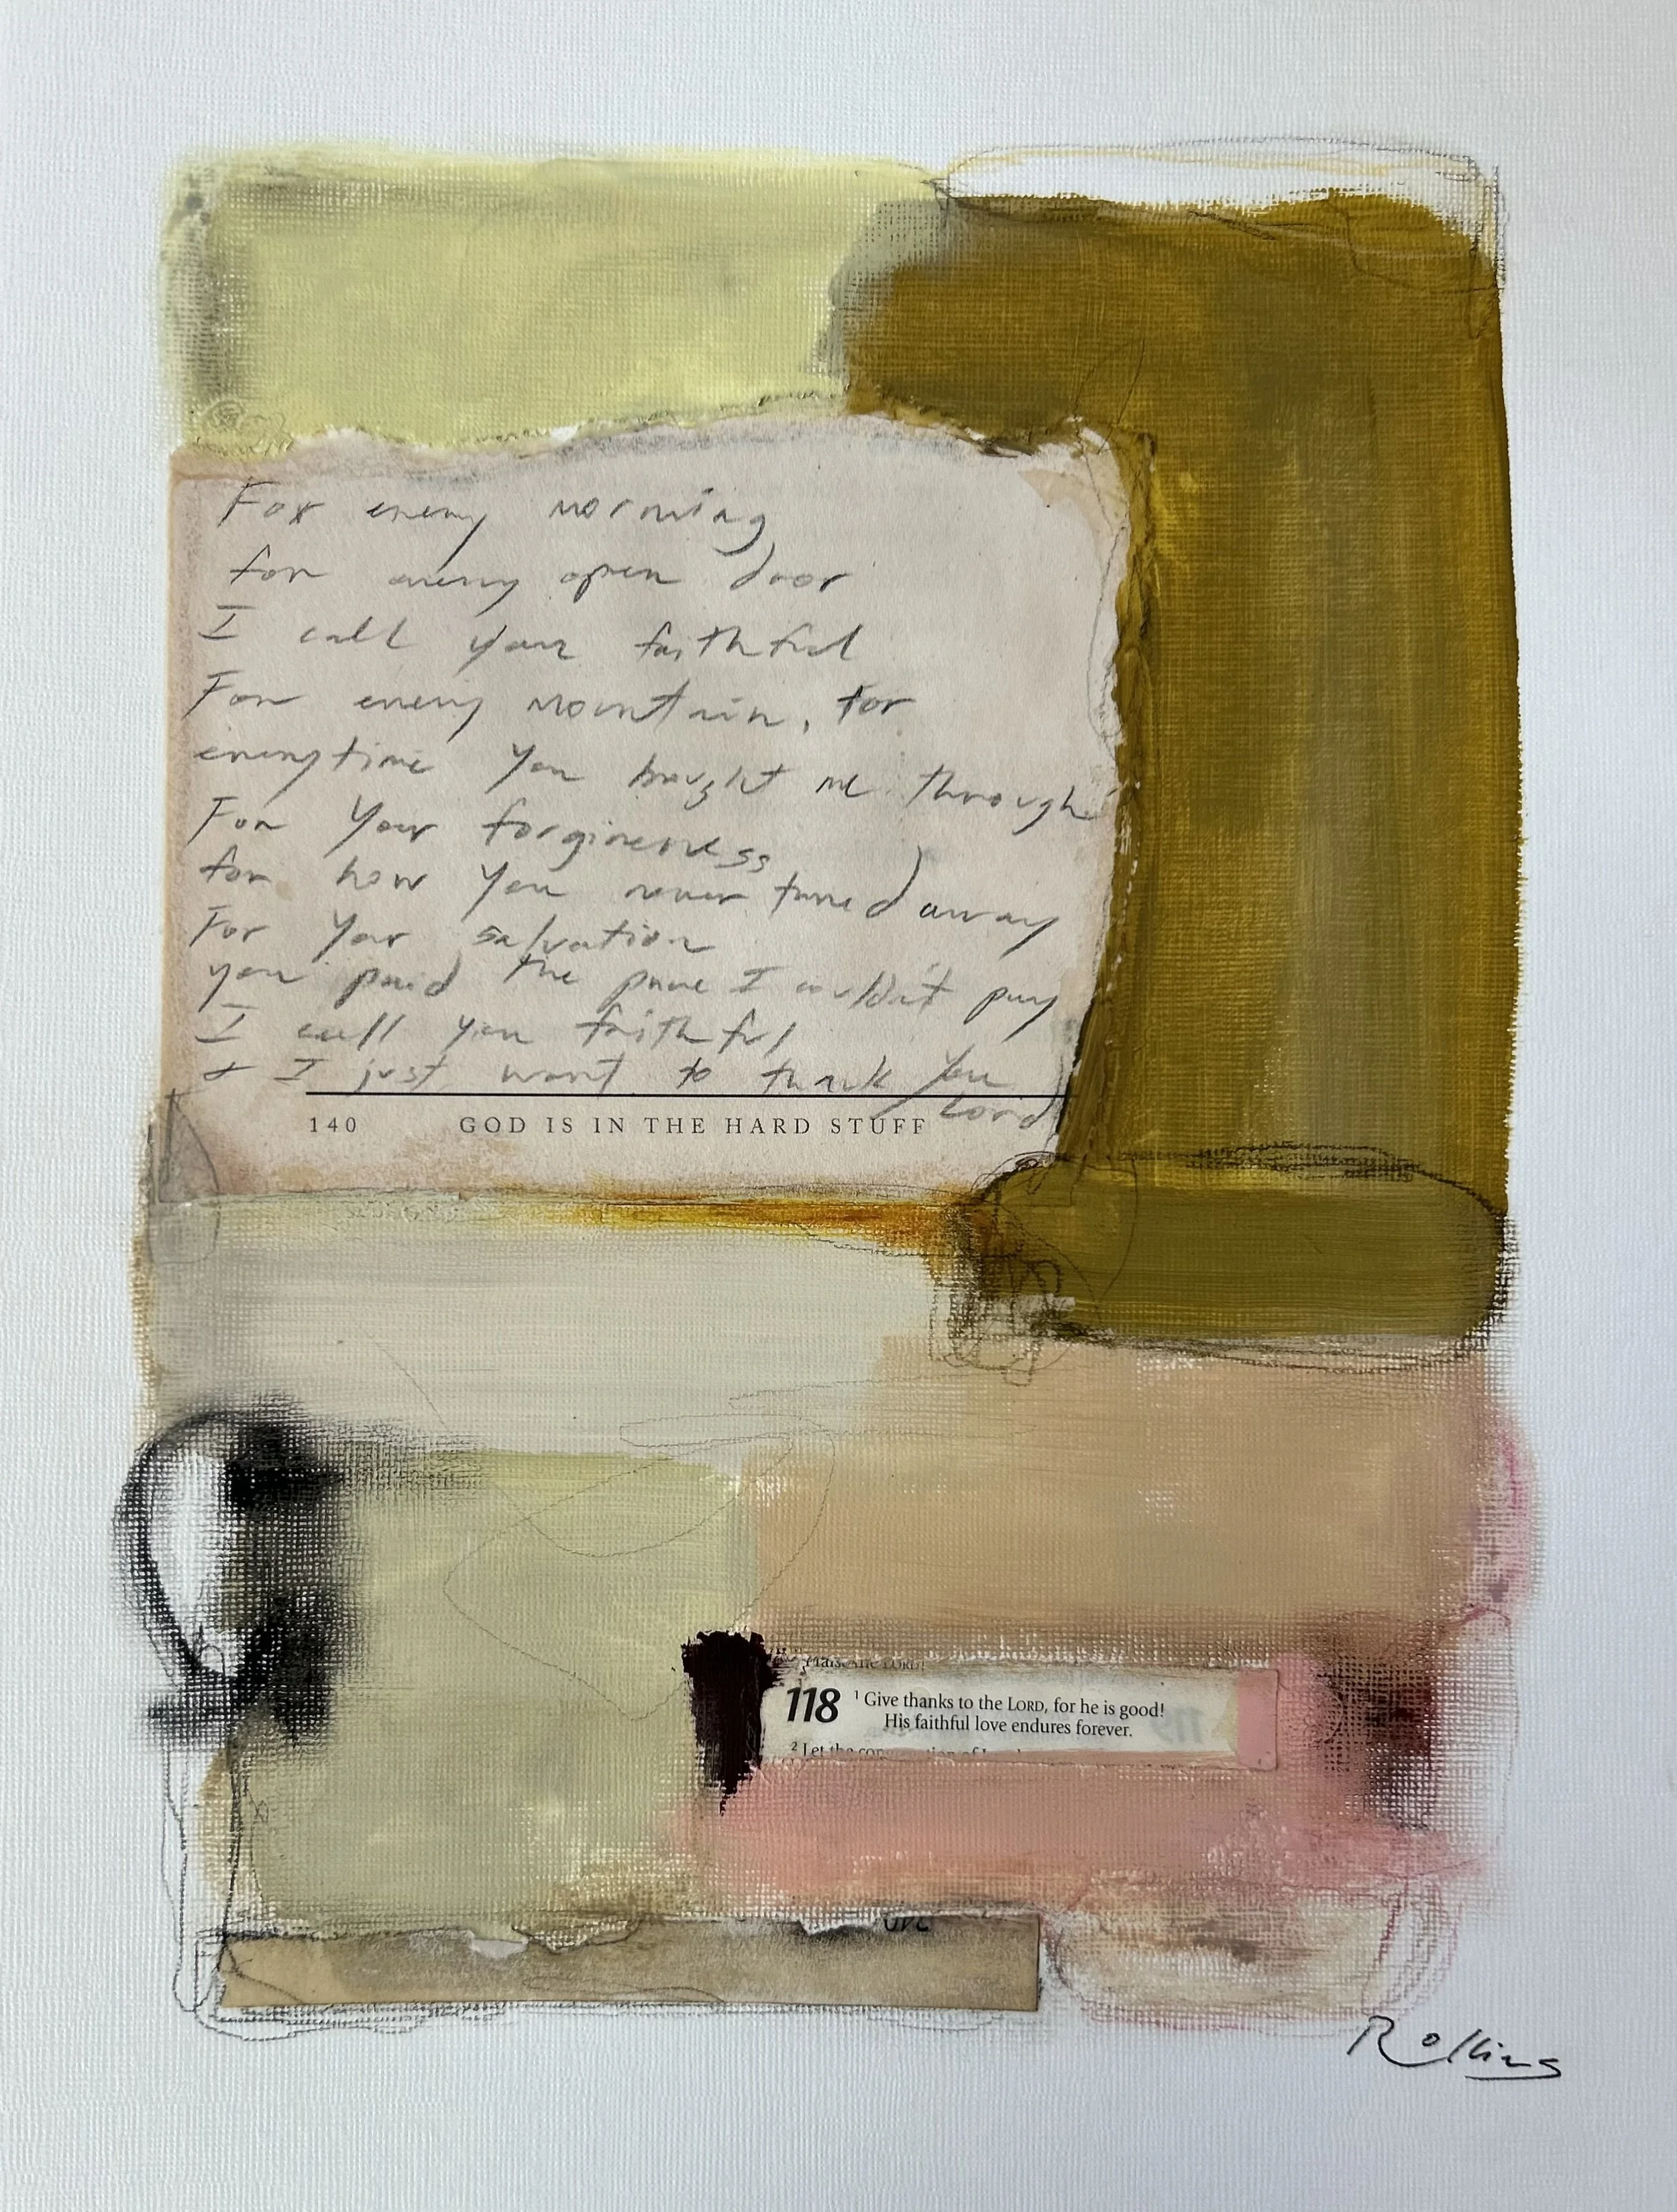 For every morning
for every open door
I call you faithful
For every mountain, for
everytime you brought me through
For Your forgiveness
for how You never turned away
For Your salvation
you paid the price I couldn't pay
I call you faithful
+ I just want to thank You
Lord
140 GOD IS IN THE HARD STUFF
Praise the LORD!
118 1 Give thanks to the LORD, for he is good!
His faithful love endures forever.
2 Let the
Rollins